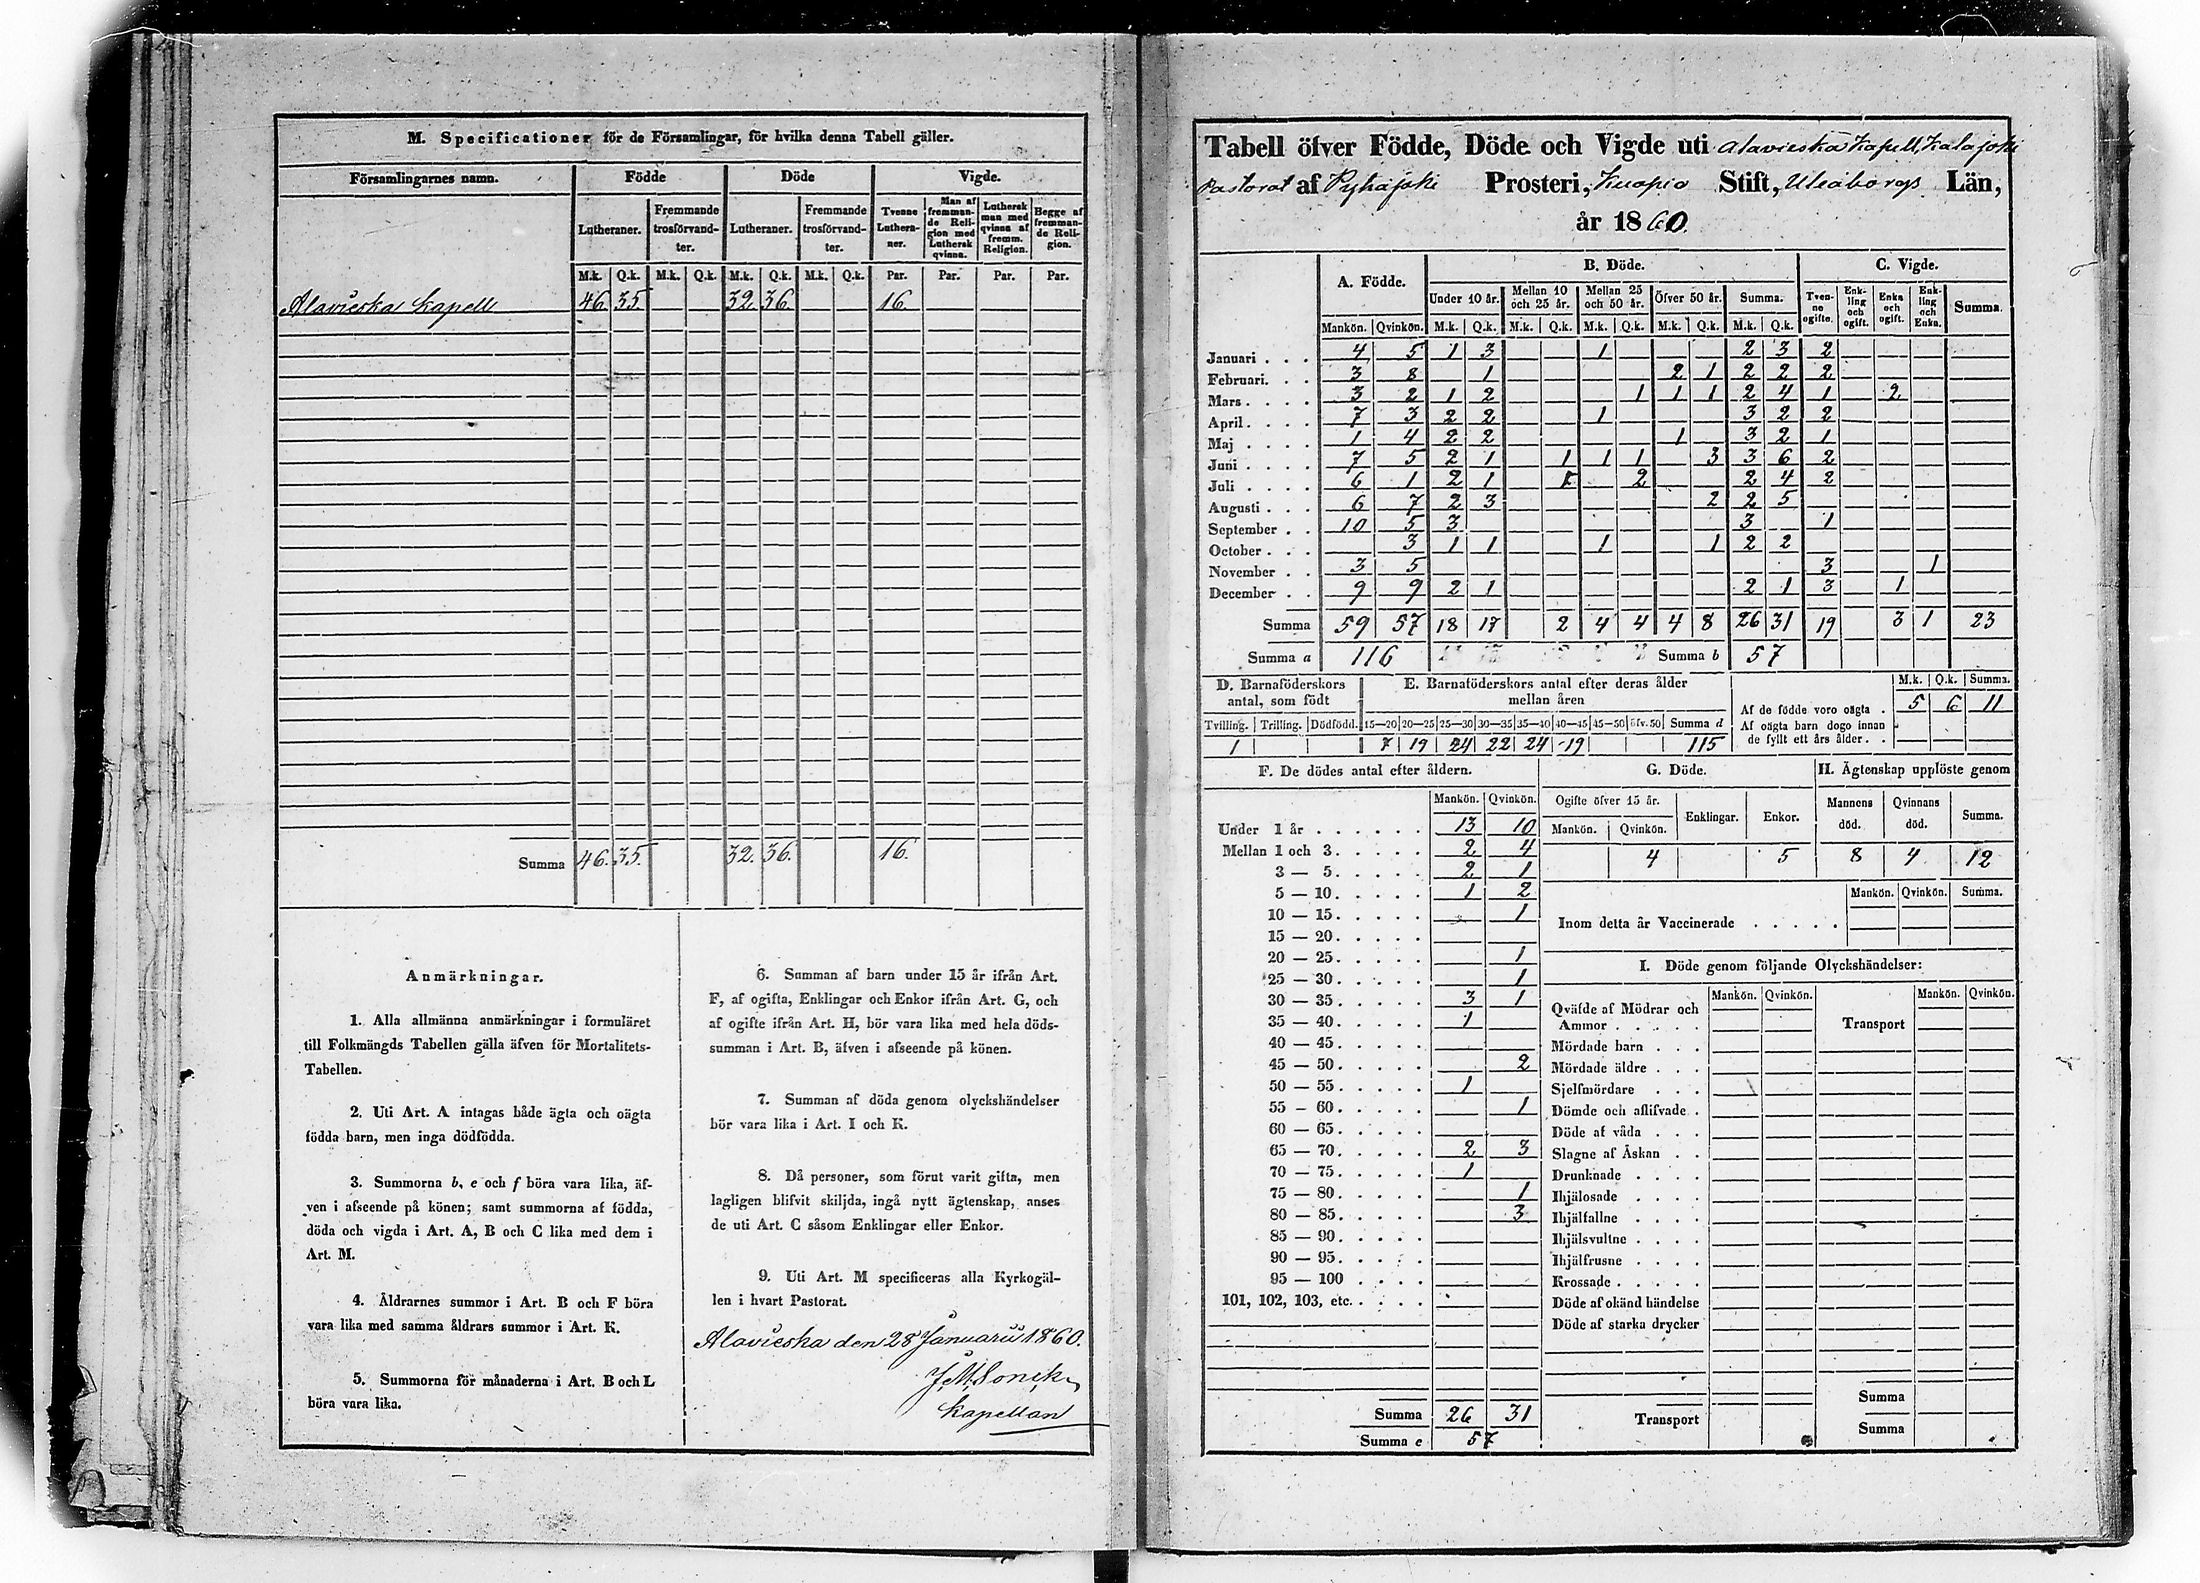 M. Specificationer för de Församlingar, för hvilka denna Tabell gäller.
Församlingarnes namn. Födde Döde Vigde.
Lutheraner. Fremmande trosförvandter. Lutheraner. Fremmande trosförvandter. Tvenne Lutheraner. Man af fremmande Religion med Luthersk qvinna. Luthersk man med qvinna af fremm. Religion. Begge af fremmande Religion.
M.k. Q.k. M.k. Q.k. M.k. Q.k. M.k. Q.k. Par. Par. Par. Par.
Alavieska Kapell 46. 35. 32. 36. 16.
Summa 46. 35. 32. 36. 16.
Anmärkningar.
1. Alla allmänna anmärkningar i formuläret
till Folkmängds Tabellen gälla äfven för Mortalitets-
Tabellen.
2. Uti Art. A intagas både ägta och oägta
födda barn, men inga dödfödda.
3. Summorna b, e och f böra vara lika, äf-
ven i afseende på könen; samt summorna af födda,
döda och vigda i Art. A, B och C lika med dem i
Art. M.
4. Åldrarnes summor i Art. B och F böra
vara lika med samma åldrars summor i Art. K.
5. Summorna för månaderna i Art. B och L
böra vara lika.
6. Summan af barn under 15 år ifrån Art.
F, af ogifta, Enklingar och Enkor ifrån Art. G, och
af ogifte ifrån Art. H, bör vara lika med hela döds-
summan i Art. B, äfven i afseende på könen.
7. Summan af döda genom olyckshändelser
bör vara lika i Art. I och K.
8. Då personer, som förut varit gifta, men
lagligen blifvit skiljda, ingå nytt ägtenskap, anses
de uti Art. C såsom Enklingar eller Enkor.
9. Uti Art. M specificeras alla Kyrkogäl-
len i hvart Pastorat.
Alavieska den 28 Januarii 1860.
Kapellan
Tabell öfver Födde, Döde och Vigde uti Alavieska Kapell, Kalajoki
Pastorat af Pyhäjoki Prosteri, Kuopio Stift, Uleåborgs Län,
år 1860
A. Födde. B. Döde. C. Vigde.
Under 10 år. Mellan 10 och 25 år. Mellan 25 och 50 år. Öfver 50 år. Summa. Tvenne ogifte. Enkling och ogift. Enka och ogift. Enkling och Enka. Summa.
Mankön. Qvinkön. M.k. Q.k. M.k. Q.k. M.k. Q.k. M.k. Q.k. M.k. Q.k.
Januari . . . 4 5 1 3 1 2 3 2
Februari. . . 3 8 1 2 1 2 2 2
Mars . . . . 3 2 1 2 1 1 1 2 4 1 2
April. . . . 7 3 2 2 1 3 2 2
Maj . . . . 1 4 2 2 1 3 2 1
Juni . . . . 7 5 2 1 1 1 1 3 3 6 2
Juli . . . . 6 1 2 1 1 2 2 4 2
Augusti . . . 6 7 2 3 2 2 5
September . . 10 5 3 3 1
October . . . 3 1 1 1 1 2 2
November . . 3 5 3 1
December . . 9 9 2 1 2 1 3 1
Summa 59 57 18 17 2 4 4 4 8 26 31 19 3 1 23
Summa a 116 Summa b 57
D. Barnaföderskors antal, som födt
E. Barnaföderskors antal efter deras ålder mellan åren
Tvilling. Trilling. Dödfödd. 15—20 20—25 25—30 30—35 35—40 40—45 45—50 öfv. 50 Summa d
1 7 19 24 22 24 19 115
M.k. Q.k. Summa.
Af de födde voro oägta . 5 6 11
Af oägta barn dogo innan
de fyllt ett års ålder . .
F. De dödes antal efter åldern.
Mankön. Qvinkön.
Under 1 år . . . . . . 13 10
Mellan 1 och 3. . . . . 2 4
3 — 5. . . . . 2 1
5 — 10. . . . . 1 2
10 — 15. . . . . 1
15 — 20. . . . .
20 — 25. . . . . 1
25 — 30. . . . . 1
30 — 35. . . . . 3 1
35 — 40. . . . . 1
40 — 45. . . . .
45 — 50. . . . . 2
50 — 55. . . . . 1
55 — 60. . . . . 1
60 — 65. . . . .
65 — 70. . . . . 2 3
70 — 75. . . . . 1
75 — 80. . . . . 1
80 — 85. . . . . 3
85 — 90. . . . .
90 — 95. . . . .
95 — 100 . . . .
101, 102, 103, etc. . . . .
Summa 26 31
Summa e 57
G. Döde.
Ogifte öfver 15 år. Enklingar. Enkor.
Mankön. Qvinkön.
4 5
H. Ägtenskap upplöste genom
Mannens död. Qvinnans död. Summa.
8 4 12
Mankön. Qvinkön. Summa.
Inom detta år Vaccinerade . . . . .
I. Döde genom följande Olyckshändelser:
Mankön. Qvinkön. Mankön. Qvinkön.
Qväfde af Mödrar och
Ammor . . . . . Transport
Mördade barn . . .
Mördade äldre . . .
Sjelfmördare . . .
Dömde och aflifvade .
Döde af våda . . .
Slagne af Åskan . .
Drunknade . . . .
Ihjälosade . . . .
Ihjälfallne . . . .
Ihjälsvultne . . . .
Ihjälfrusne . . . .
Krossade . . . . .
Döde af okänd händelse
Döde af starka drycker
Summa
Transport
Summa